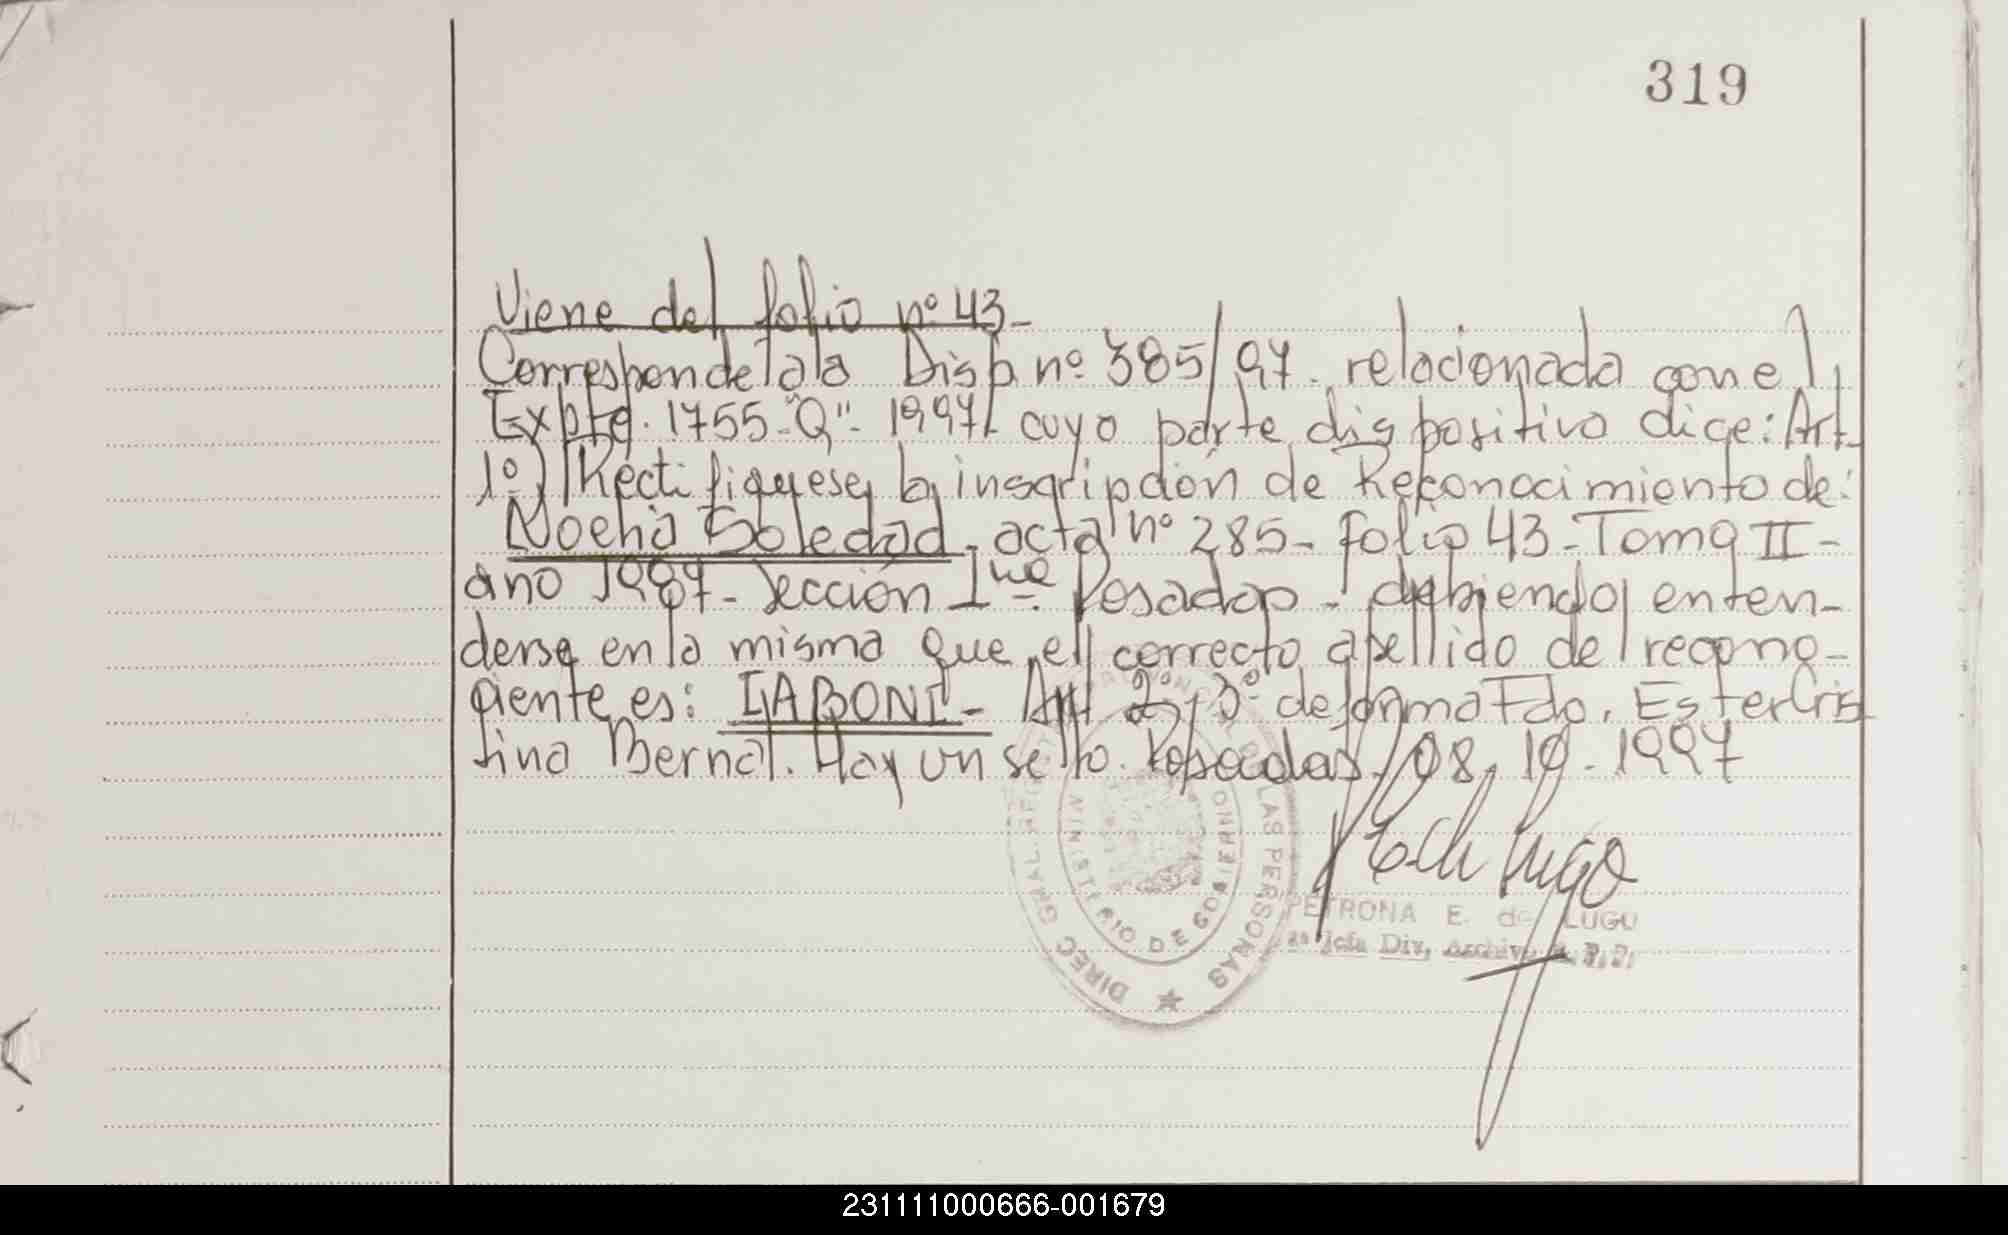 319
Viene del folio nº 43-
Corresponde a la Disp. nº 385/97. relacionada con el
Expte. 1755-"Q"- 1997/ cuya parte dispositiva dice: Art.
1º) Rectifiquese la inscripción de Reconocimiento de:
Noelia Soledad - acta nº 285- Folio 43- Tomo II-
ano 1987- Sección 1ra. Posadas - debiendo enten-
derse en la misma que el correcto apellido del recono-
ciente es: LABONI - Art 2º y 3º de forma Fdo. Ester Cris
tina Bernal. Hay un sello. Posadas, 08, 10. 1997
DIREC GRAL. DE LAS PERSONAS
MINISTERIO DE GOBIERNO
PETRONA E. de LUGO
Jefa Div. Archivo
231111000666-001679